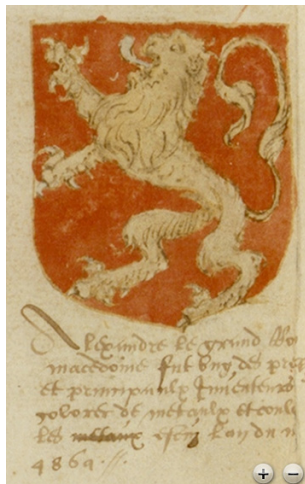 Alexandre le grand Roy
macedoine fut ung des pre
et principaulx Inventeurs
colorer de metaulx et coul
les metaulx en lan du m
4864